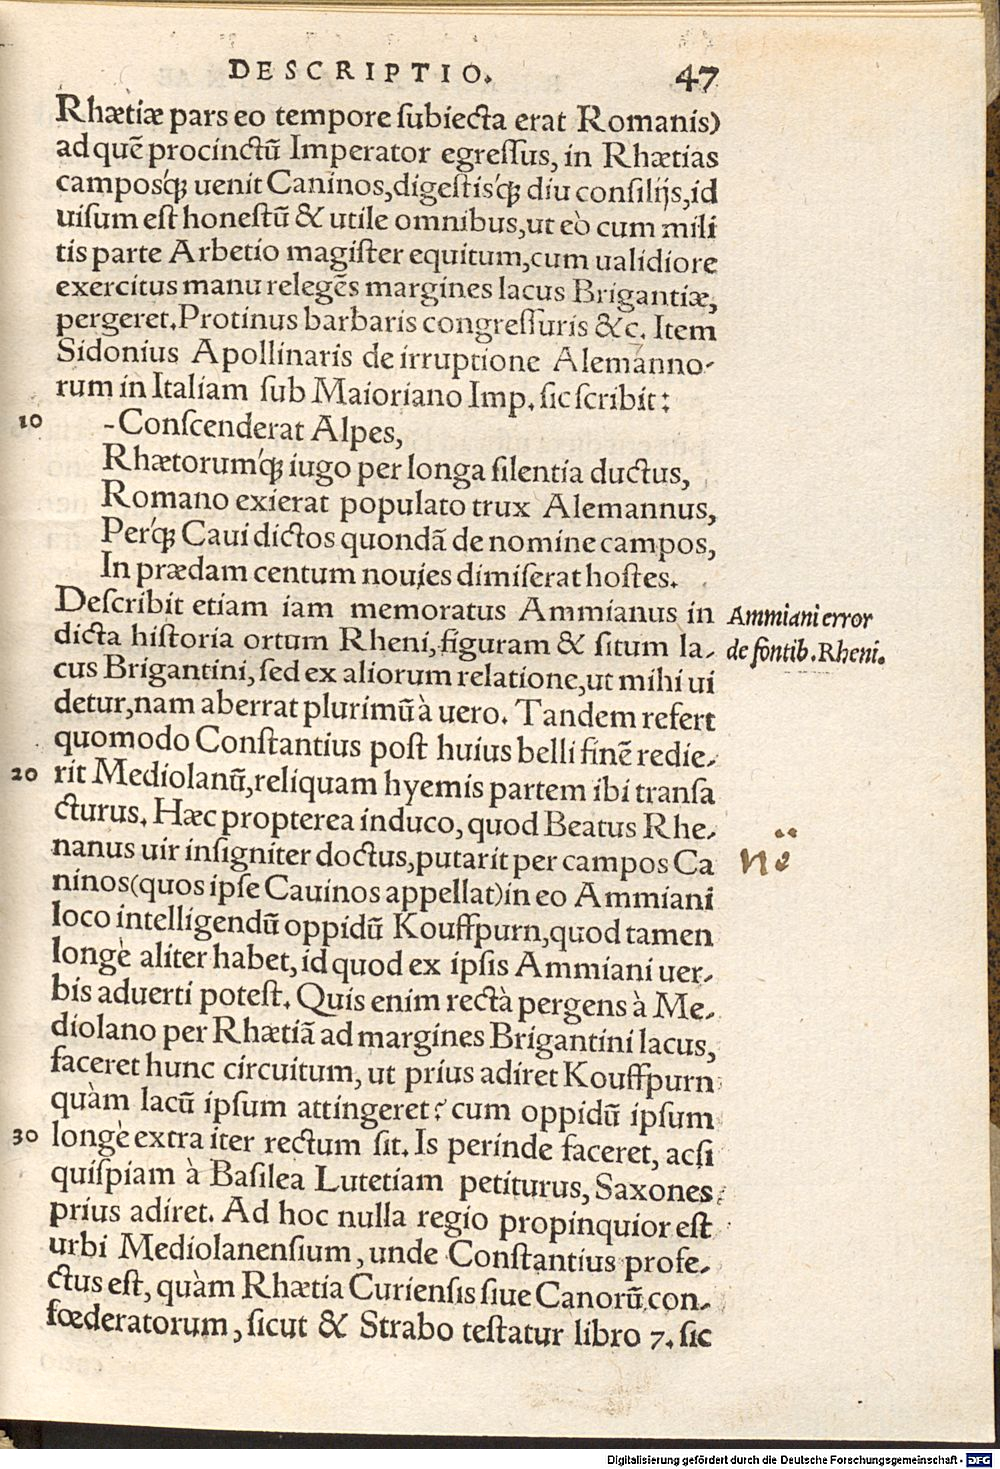 DESCRIPTIO. 47
Rhætiæ pars eo tempore ſubiecta erat Romanis)
ad quẽ procinctũ Imperator egreſſus, in Rhætias
camposq́ꝫ uenit Caninos, digeſtisq́ꝫ diu conſilijs, id
uiſum eſt honeſtũ & utile omnibus, ut eò cum mili
tis parte Arbetio magiſter equitum, cum ualidiore
exercitus manu relegẽs margines lacus Brigantiæ,
pergeret. Protinus barbaris congreſſuris &c. Item
Sidonius Apollinaris de irruptione Alemanno-
rum in Italiam ſub Maioriano Imp. ſic ſcribit:
10 -Conſcenderat Alpes,
Rhætorumq́ꝫ iugo per longa ſilentia ductus,
Romano exierat populato trux Alemannus,
Perq́ꝫ Caui dictos quondã de nomine campos,
In prædam centum nouies dimiſerat hoſtes.
Deſcribit etiam iam memoratus Ammianus in
Ammiani error
dicta hiſtoria ortum Rheni, figuram & ſitum la-
de fontib. Rheni.
cus Brigantini, ſed ex aliorum relatione, ut mihi ui
detur, nam aberrat plurimũ à uero. Tandem refert
quomodo Conſtantius poſt huius belli finẽ redie-
20 rit Mediolanũ, reliquam hyemis partem ibi tranſa
cturus. Hæc propterea induco, quod Beatus Rhe-
nanus uir inſigniter doctus, putarit per campos Ca
ninos (quos ipſe Cauinos appellat) in eo Ammiani
loco intelligendũ oppidũ Kouffpurn, quod tamen
longè aliter habet, id quod ex ipſis Ammiani uer-
bis aduerti poteſt. Quis enim rectà pergens à Me-
diolano per Rhætiã ad margines Brigantini lacus,
faceret hunc circuitum, ut prius adiret Kouffpurn
quàm lacũ ipſum attingeret? cum oppidũ ipſum
30 longè extra iter rectum ſit. Is perinde faceret, acſi
quiſpiam à Baſilea Lutetiam petiturus, Saxones
prius adiret. Ad hoc nulla regio propinquior eſt
urbi Mediolanenſium, unde Conſtantius profe-
ctus eſt, quàm Rhætia Curienſis ſiue Canorũ con-
fœderatorum, ſicut & Strabo teſtatur libro 7. ſic
Digitalisierung gefördert durch die Deutsche Forschungsgemeinschaft - DFG